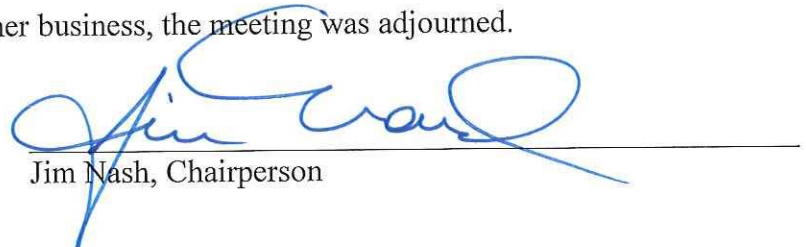 ner business, the meeting was adjourned.
Jim Nash, Chairperson